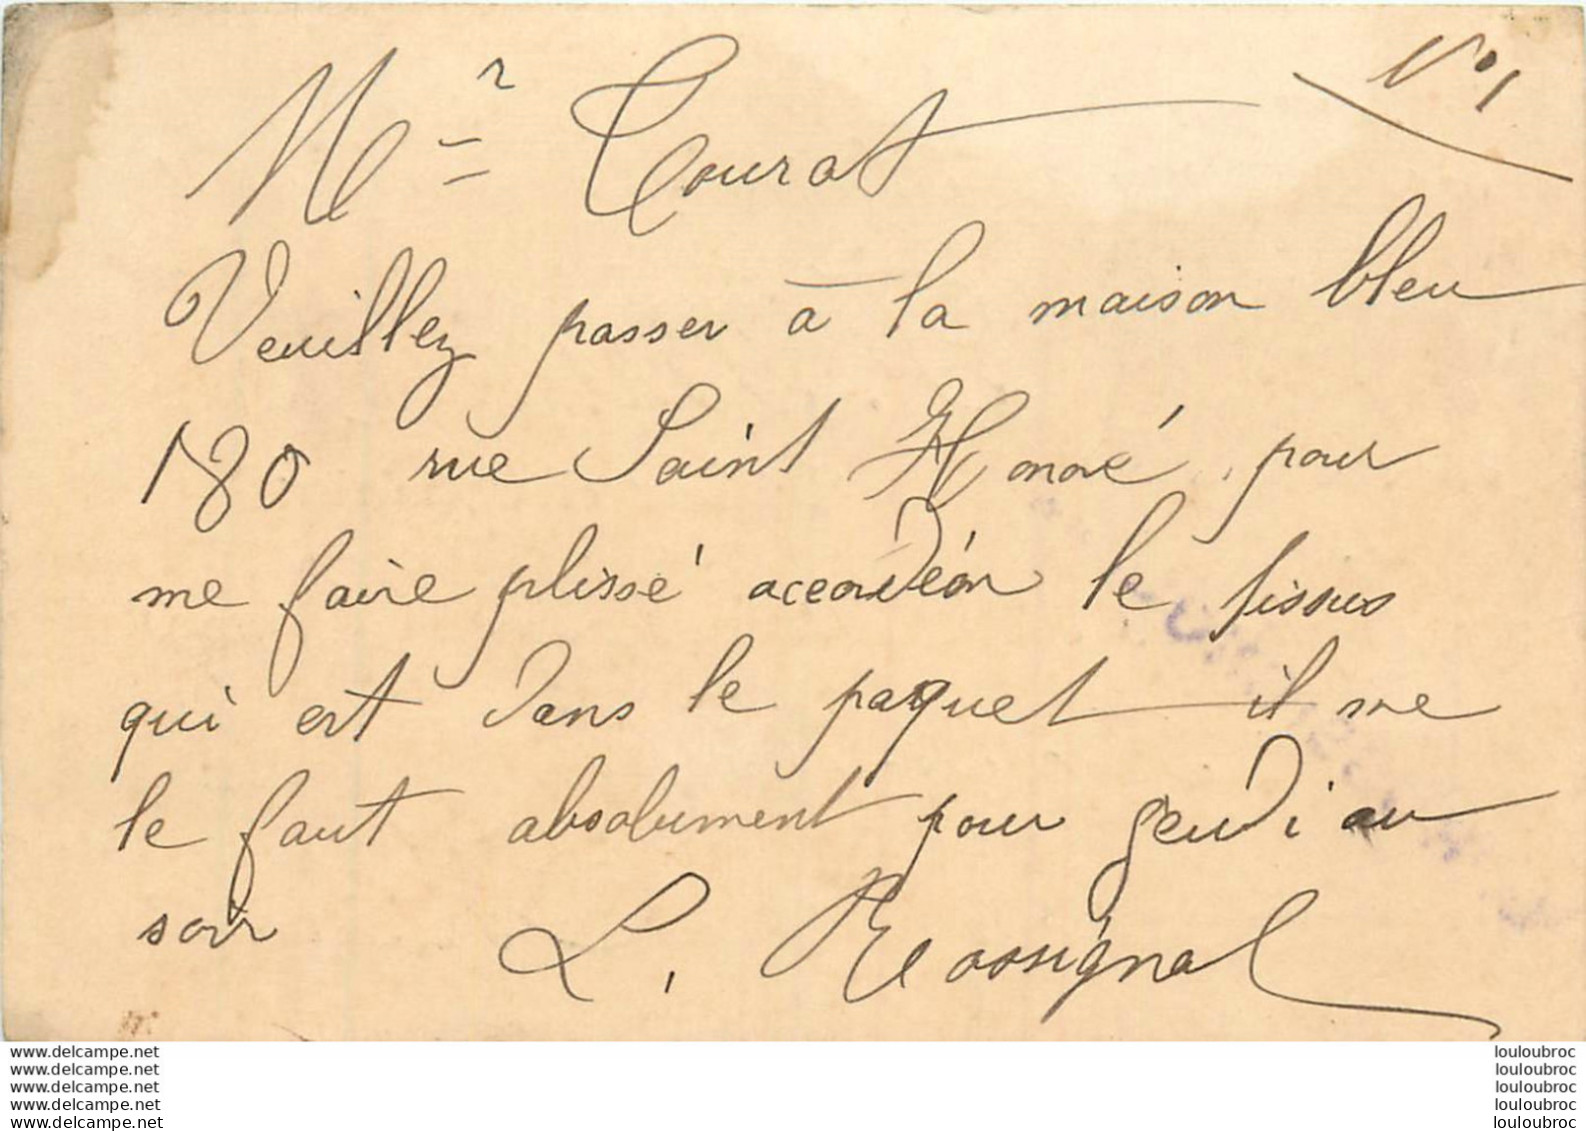 N°1
Mr Courat
Veuillez passer à la maison bleu
180 rue Saint Honoré pour
me faire plissé accordéon le tissus
qui est dans le paquet il me
le faut absolument pour jeudi au
soir L. Rossignol
www.delcampe.net
www.delcampe.net
www.delcampe.net
www.delcampe.net
www.delcampe.net
louloubroc
louloubroc
louloubroc
louloubroc
louloubroc